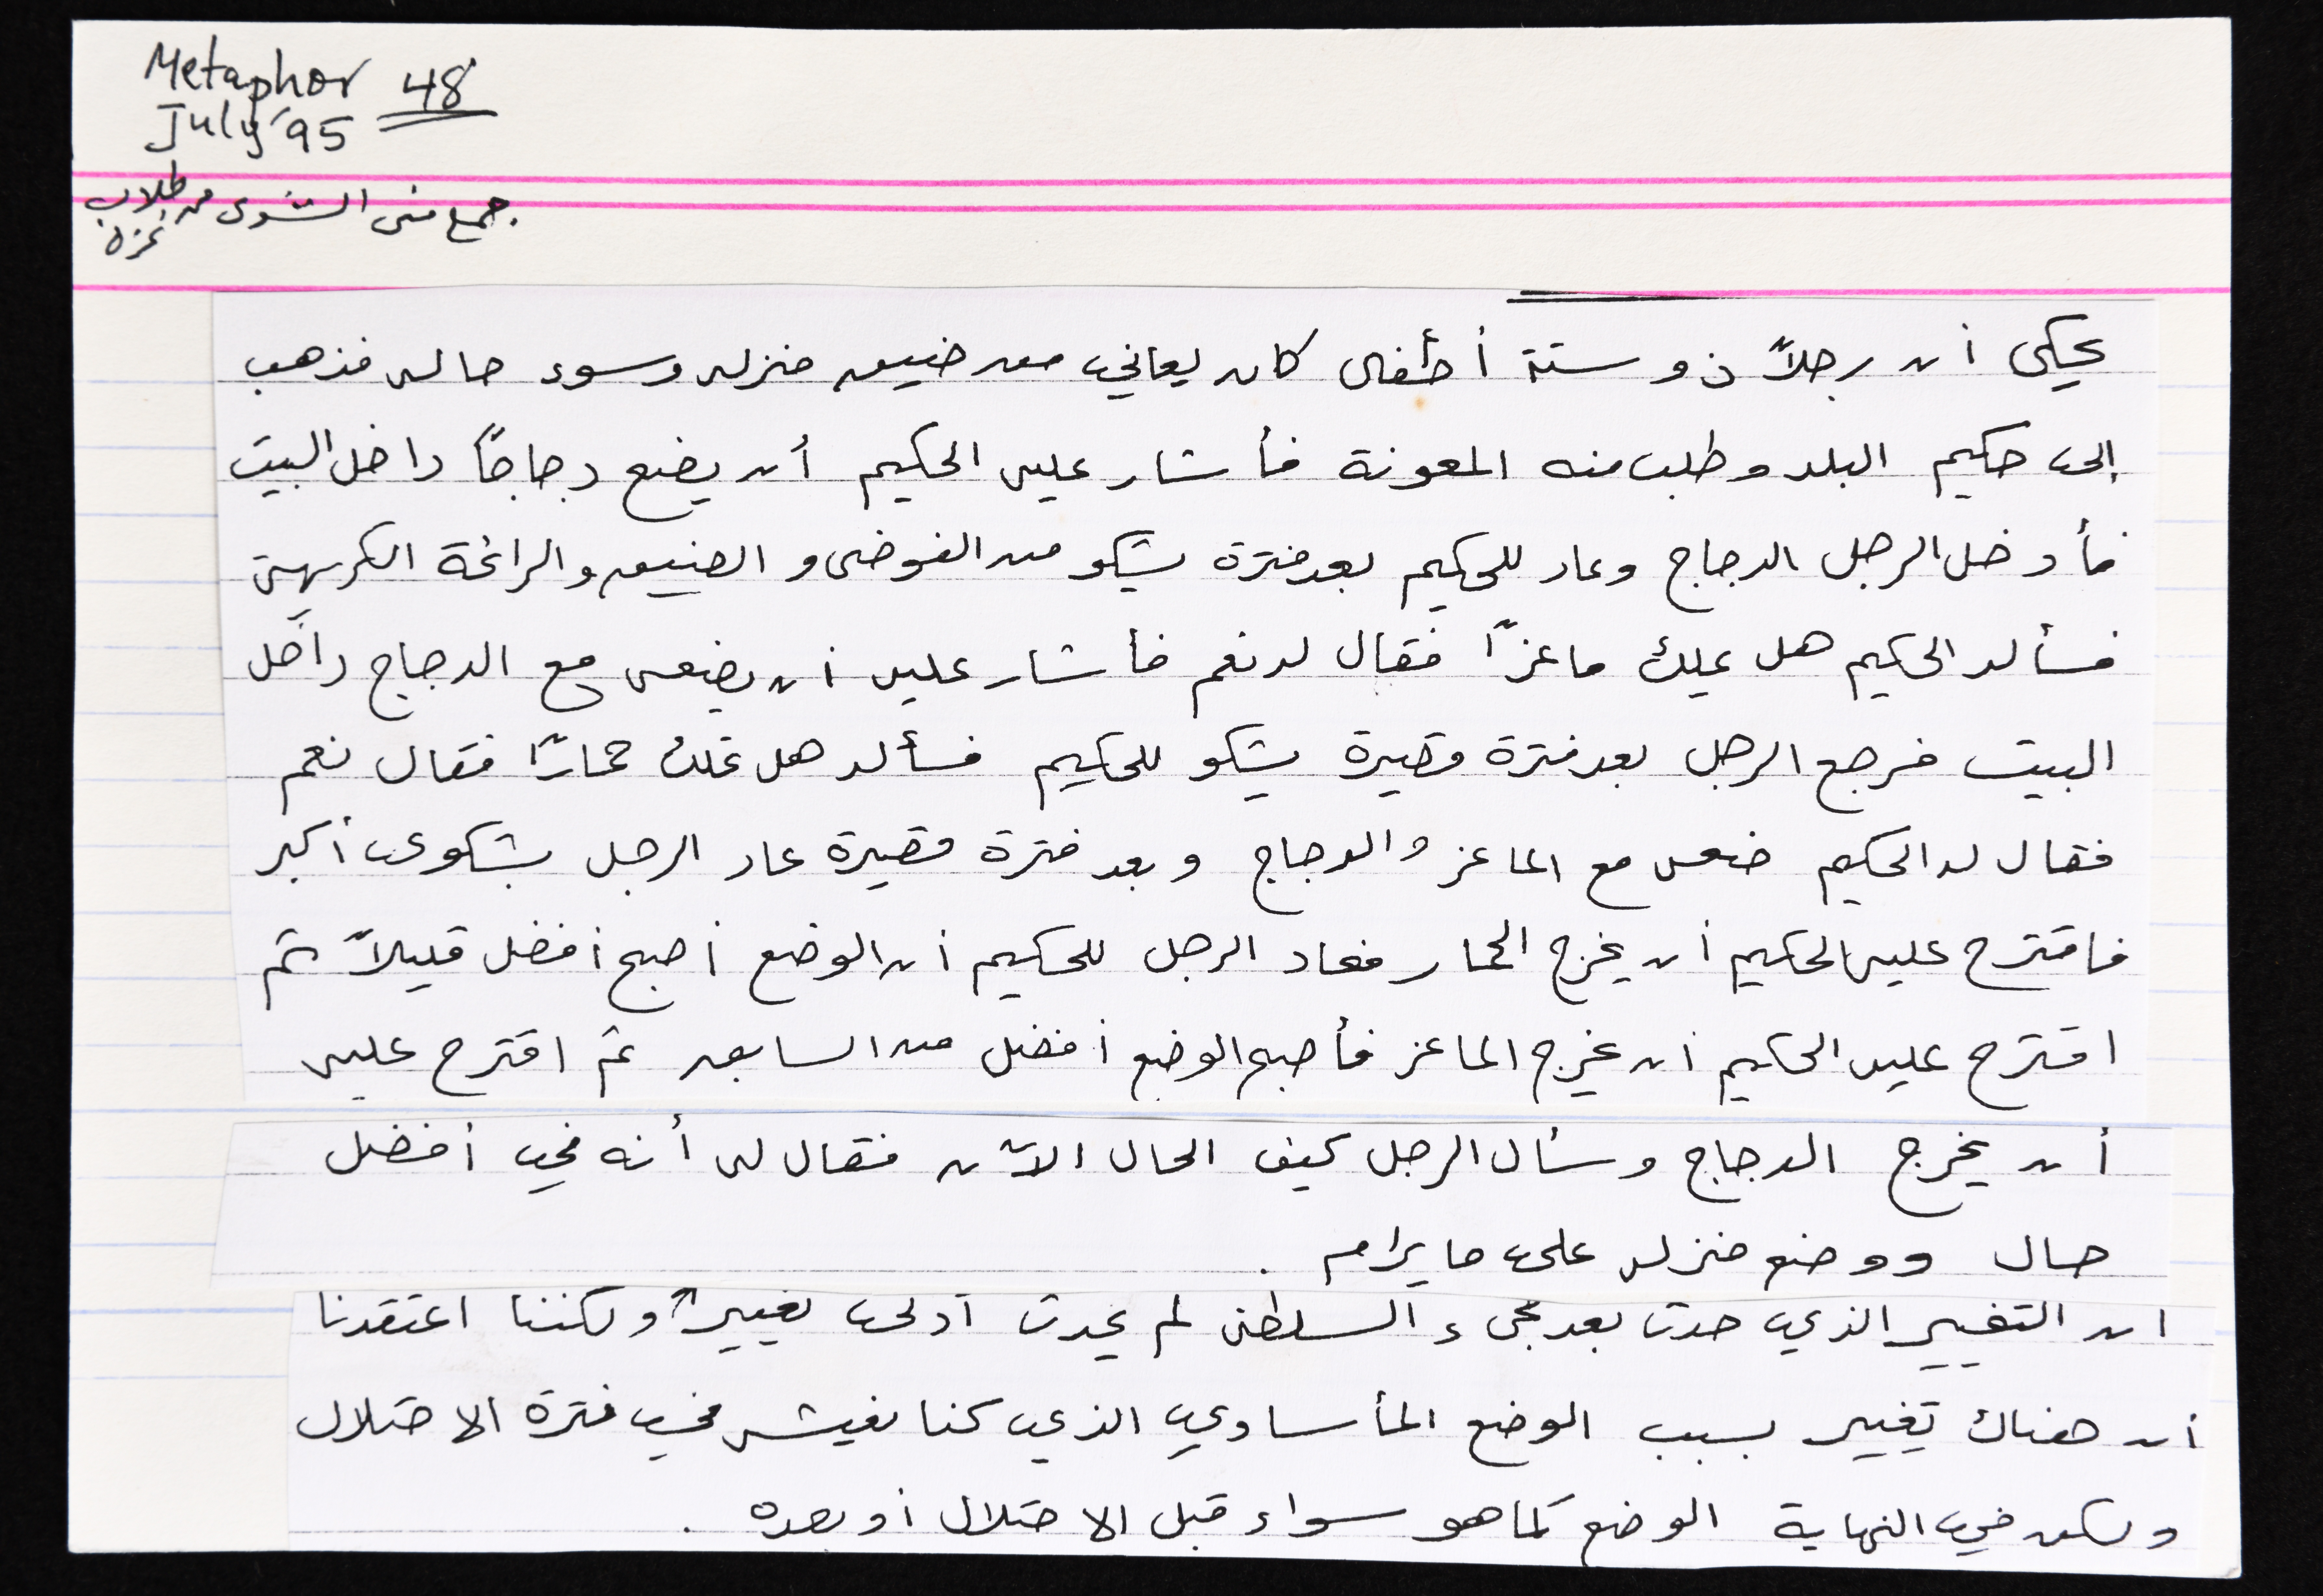 Metaphor 48
July '95
جمع منى الشوى من طلاب
غزة
يحكى أن رجلاً ذو ستة أطفال كان يعاني من ضيق منزله وسوء حاله فذهب
إلى حكيم البلد وطلب منه المعونة فأشار عليه الحكيم أن يضع دجاجاً داخل البيت
فأدخل الرجل الدجاج وعاد للحكيم بعد فترة يشكو من الفوضى و الضيق والرائحة الكريهة
فسأله الحكيم هل عملك ماعزاً فقال له نعم فأشار عليه أن يضعه مع الدجاج داخل
البيت فرجع الرجل بعد فترة قصيرة يشكو للحكيم فسأله هل تملك حماراً فقال نعم
فقال له الحكيم ضعه مع الماعز والدجاج وبعد فترة قصيرة عاد الرجل بشكوى أكبر
فاقترح عليه الحكيم أن يخرج الحمار فعاد الرجل للحكيم أن الوضع أصبح أفضل قليلاً ثم
اقترح عليه الحكيم أن يخرج الماعز فأصبح الوضع أفضل من السابق ثم اقترح عليه
أن يخرج الدجاج وسأل الرجل كيف الحال الآن فقال له أنه في أفضل
حال ووضع منزله على ما يرام .
ان التغيير الذي حدث بعد مجىء السلطة لم يحدث أدلى تغييراً ولكننا اعتقدنا
أن هناك تغيير بسبب الوضع المأساوي الذي كنا نعيشه في فترة الاحتلال
ولكن في النهاية الوضع كما هو سواء قبل الاحتلال أو بعده .